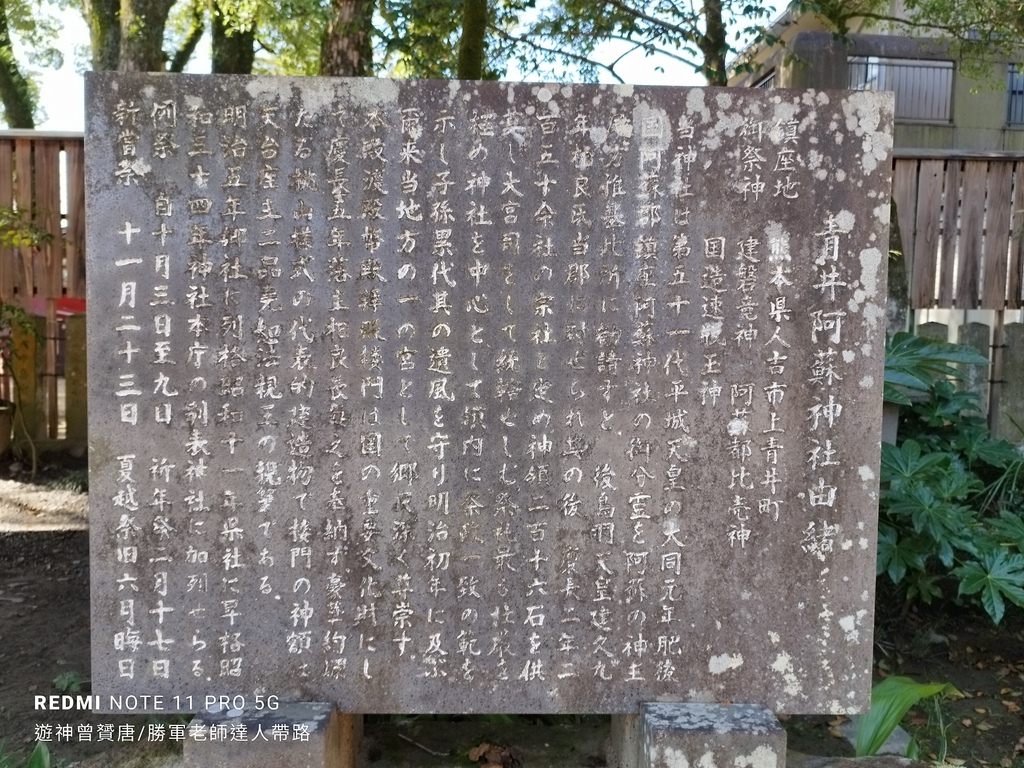 青井阿蘇神社由緒
鎮座地 熊本県人吉市上青井町
御祭神 建磐竜神 阿蘇都比売神
国造速瓶玉神
当神社は第五十一代平城天皇の大同元年肥後
国阿蘇郡鎮座阿蘇神社の御分霊を阿蘇の神主
惟基此所に勧請すと、後鳥羽天皇建久九
年相良氏当郡に封せられ其の後 長二年二
百五十余社の宗社と定め神領二百十六石を供
し大宮司をして統轄せしむ祭祀最も
め神社を中心として領内に祭政一致の範を
示し子孫累代其の遺風を守り明治初年に及ぶ
爾来当地方の一の宮として郷民深く尊崇す
本殿渡殿幣殿拝殿楼門は国の重要文化財にし
て慶長五年藩主相良長 奉納す慶
たる桃山様式の代表的建造物で楼門の神額は
天台座主二品堯恕法親王の親筆である。
明治五年郷社に列格昭和十一年県社に昇格昭
和三十四年神社本庁の別表神社に加列せらる
例祭 自十月三日至九日 祈年祭二月十七日
新嘗祭 十一月二十三日 夏越祭旧六月晦日
REDMI NOTE 11 PRO 5G
遊神曾贇唐/勝軍老師達人帶路